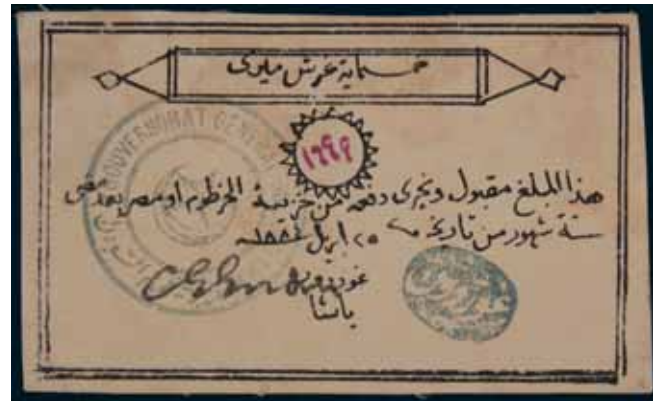 خمسماية غرش ميرى
GOUVERNORAT GENERAL
هذا المبلغ مقبول ويجرى دفعه من خزينة الخرطوم او مصر بعد مضى
ستة شهور من تاريخه ٢٥ ابريل ١٨٨٤
غوردون
باشا